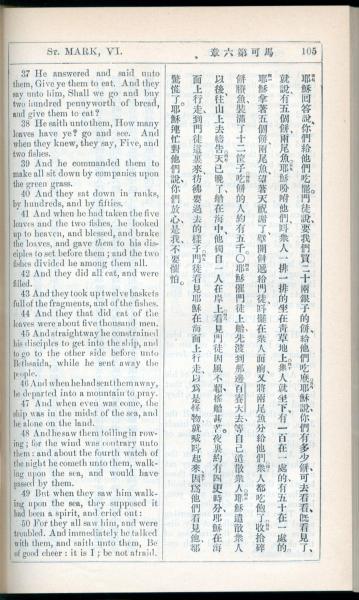 St. MARK, VI.
馬可第六章
105
37 He answered and said unto
them, Give ye them to eat. And they
say unto him, Shall we go and buy
two hundred pennyworth of bread,
and give them to eat?
38 He saith unto them, How many
loaves have ye? go and see. And
when they knew, they say, Five, and
two fishes.
39 And he commanded them to
make all sit down by companies upon
the green grass.
40 And they sat down in ranks,
by hundreds, and by fifties.
41 And when he had taken the five
loaves and the two fishes, he looked
up to heaven, and blessed, and brake
the loaves, and gave them to his dis-
ciples to set before them; and the two
fishes divided he among them all.
42 And they did all eat, and were
filled.
43 And they took up twelve baskets
full of the fragments, and of the fishes.
44 And they that did eat of the
loaves were about five thousand men.
45 And straightway he constrained
his disciples to get into the ship, and
to go to the other side before unto
Bethsaida, while he sent away the
people.
46 And when he had sent them away,
he departed into a mountain to pray.
47 And when even was come, the
ship was in the midst of the sea, and
he alone on the land.
48 And he saw them toiling in row-
ing; for the wind was contrary unto
them: and about the fourth watch of
the night he cometh unto them, walk-
ing upon the sea, and would have
passed by them.
49 But when they saw him walk-
ing upon the sea, they supposed it
had been a spirit, and cried out:
50 For they all saw him, and were
troubled. And immediately he talked
with them, and saith unto them, Be
of good cheer: it is I; be not afraid.
耶穌回答說、你們給他們吃罷。門徒說、要我們買二十兩銀子的餅、給他們吃麼。耶穌說、你們有多少餅、可去看看。既看見了、
就說、有五個餅、兩尾魚。耶穌吩咐他們叫衆人一排一排的坐在青草地上。衆人就坐下、有一百在一處的、有五十在一處的。
耶穌拿著五個餅、兩尾魚、望著天祝謝了、擘開餅、遞給門徒、叫擺在衆人面前、又將兩尾魚分給他們。衆人都吃飽了。收拾碎
餅賸魚、裝滿了十二筐子。吃餅的人約有五千。○耶穌催門徒上船、先渡到那邊百賽大去、等自己遣散衆人。耶穌遣散衆人
以後、往山上去禱告。天已晚了、船在海中、他獨自一人在岸上。看見門徒因風不順、搖櫓甚苦。夜裏約有四更時分、耶穌在海
面上行走、到門徒這裏來、彷彿要過去的樣子。門徒看見耶穌在海面上行走、以爲是怪物、就喊叫起來。因爲他們看見他、都
驚慌了。耶穌連忙對他們說、你們放心、是我、不要懼怕。